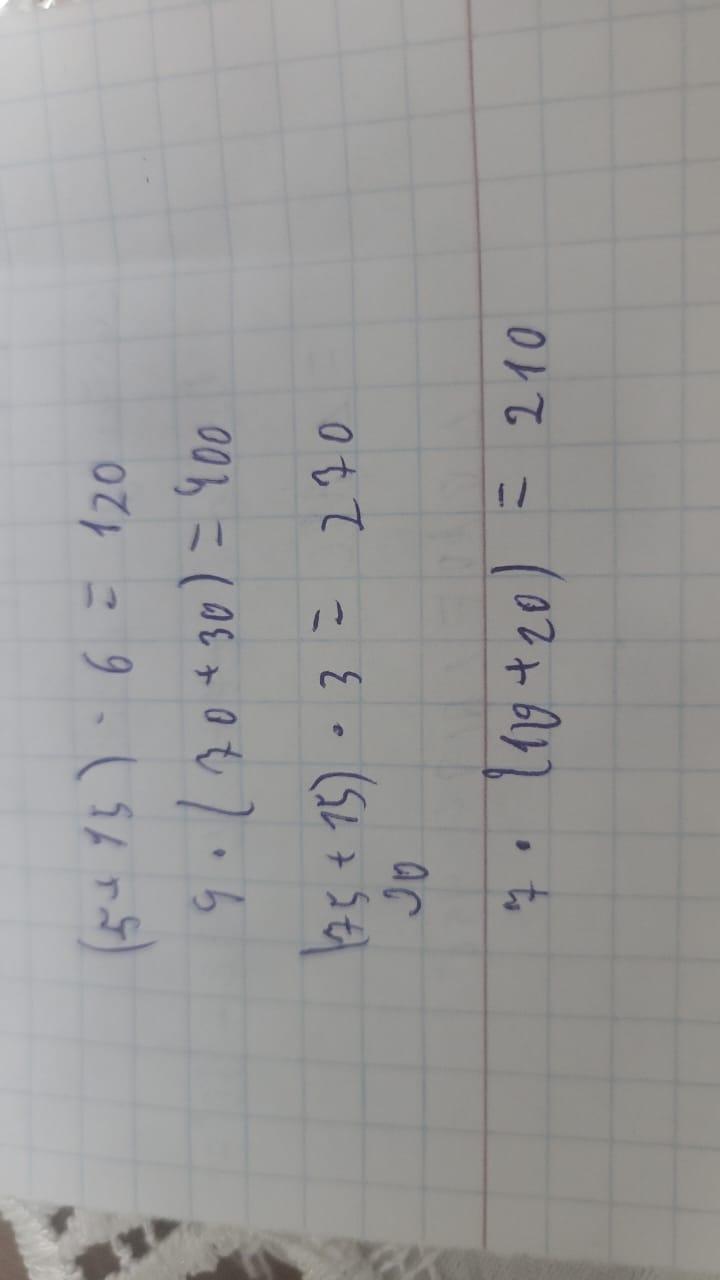 (5 + 15) · 6 = 120
4 · (70 + 30) = 400
(75 + 15) · 3 = 270
90
7 · (10 + 20) = 210